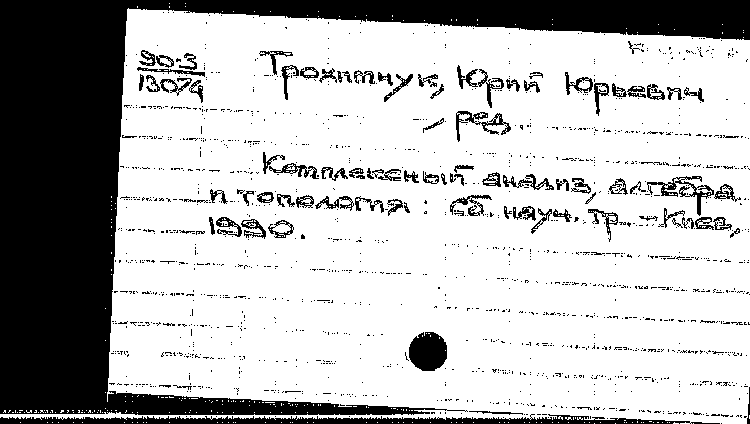 90-3
13074
Трохимчук, Юрий Юрьевич
, ред.
Комплексный анализ, алгебра
и топология : Сб. науч. тр. - Киев,
1990.